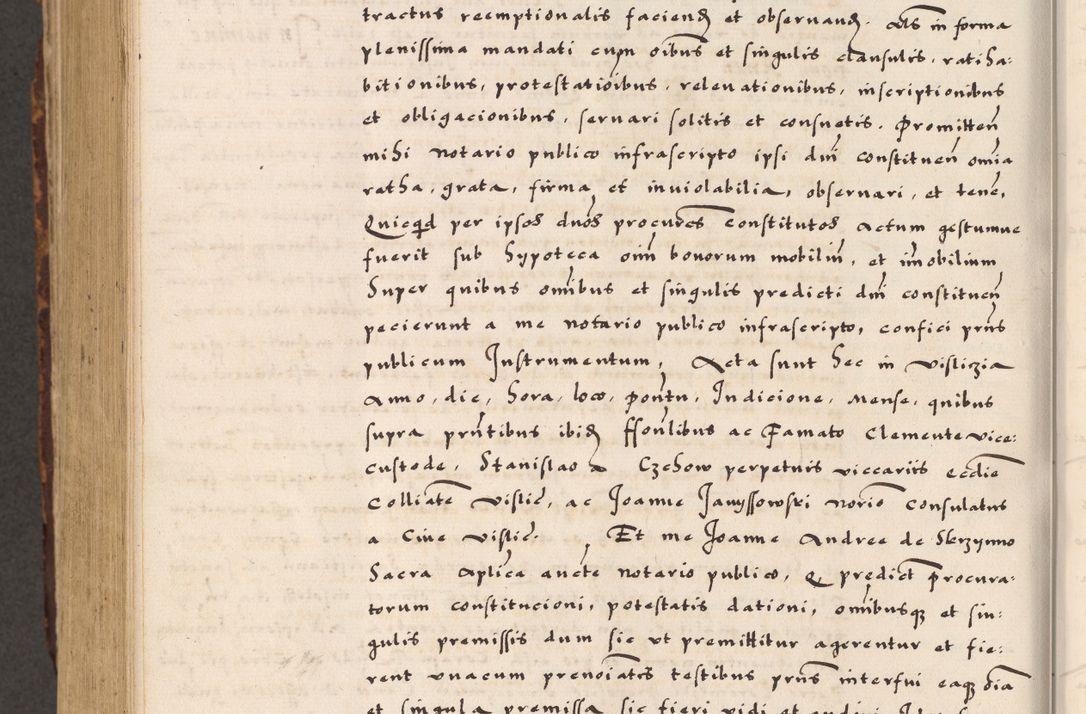 tractus reemptionalis faciend et observand. Ac in forma
plenissima mandati cum oibus et singulis clausulis, ratiha-
bitionibus, protestatioibus, relevationibus, inscriptionibus
et obligacionibus, servari solitis et consuetis. Promitten
mihi notario publico infrascripto ipsi dni constituen omia
ratha, grata, firma et inviolabilia, observari, et tene,
Quicqd per ipsos duos procures constitutos actum gestumve
fuerit sub hypoteca oim bonorum mobiliu, et imobilium
Super quibus omibus et singulis predicti dni constituen
pecierunt a me notario publico infrascripto, confici prns
publicum Instrumentum, Acta sunt hec in Visliczia
Anno, die, hora, loco, pontu, Indicione, Mense, quibus
supra prntibus ibid hsonlibus ac Famato Clemente vice-
custode, Stanislao z Czchow perpetuis viccariis ecclie
Colliate Vislic, ac Joanne Janyssowski norio Consulatus
a Cive Vislic. Et me Joanne Andree de Skrzynno
Sacra Aplica aucte notario publico, Q predict procura-
torum constitucioni, potestatis dationi, omibusq et sin-
gulis premissis dum sic ut premittitur agerentur et fie-
rent unacum prenoiatis testibus prns interfui eaq oia
et singula premissa sic fieri vidi et audivi